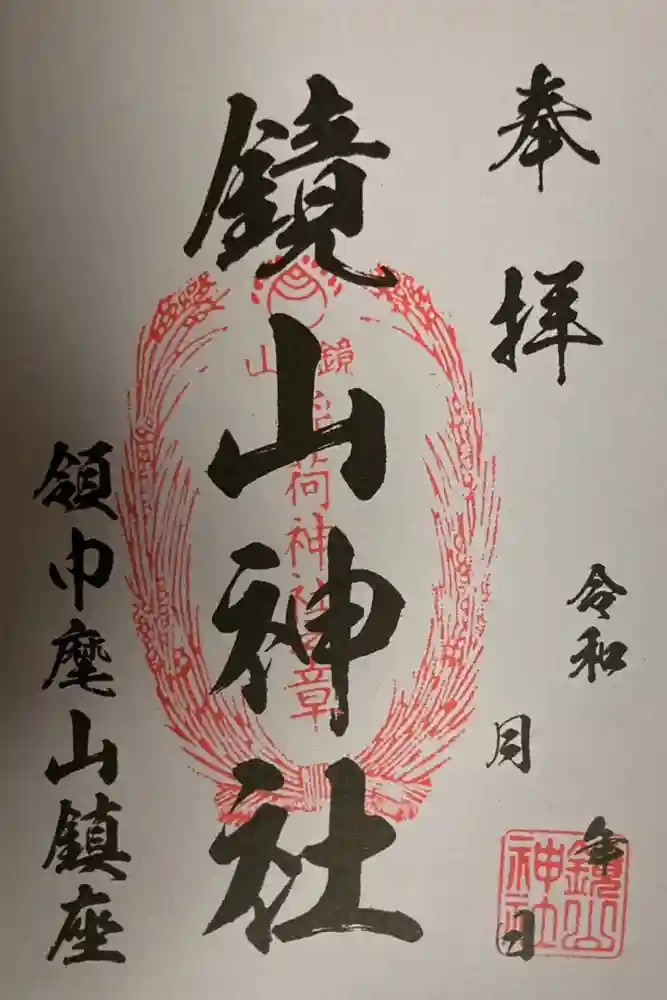 奉拝
令和 年
月 日
鏡山神社
領巾麾山鎮座
鏡山
稲荷神社之章
鏡山
神社